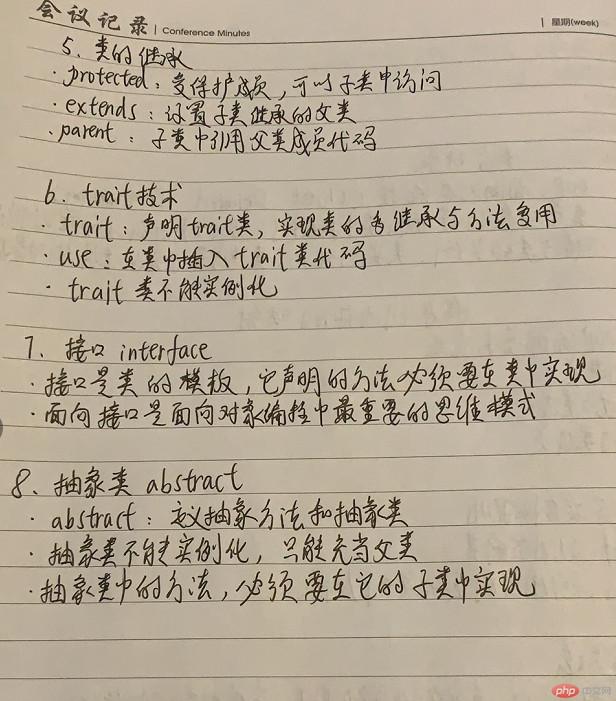 会议记录 | Conference Minutes
星期(week)
5、类的继承
· protected：受保护成员，可以子类中访问
· extends：设置子类继承的父类
· parent：子类中引用父类成员代码
6、trait技术
· trait：声明trait类，实现类的多继承与方法复用
· use：在类中插入trait类代码
· trait类不能实例化
7、接口 interface
· 接口是类的模板，它声明的方法必须要在类中实现
· 面向接口是面向对象编程中最重要的思维模式
8、抽象类 abstract
· abstract：定义抽象方法和抽象类
· 抽象类不能实例化，只能充当父类
· 抽象类中的方法，必须要在它的子类中实现
php 中文网